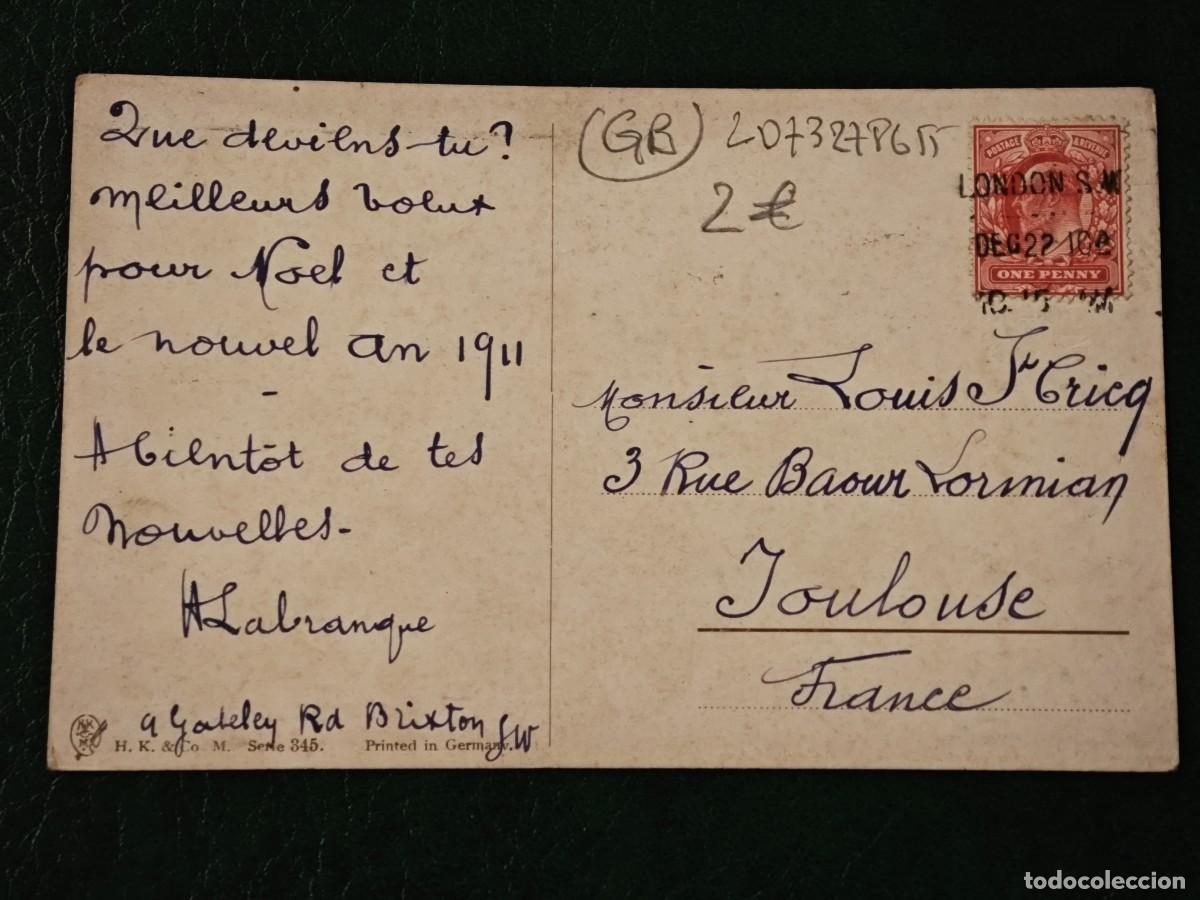 Que deviens-tu?
Meilleurs voeux
pour Noel et
le nouvel an 1911
-
A bientôt de tes
Nouvelles-
ALabranque
9 Gateley Rd Brixton SW
H. K. & Co. M. Serie 345. Printed in Germany.
(GB)
2€
POSTAGE & REVENUE
LONDON S.W
DEC 22
ONE PENNY
Monsieur Louis F Cricq
3 Rue Baour Lormian
Toulouse
France
todocoleccion